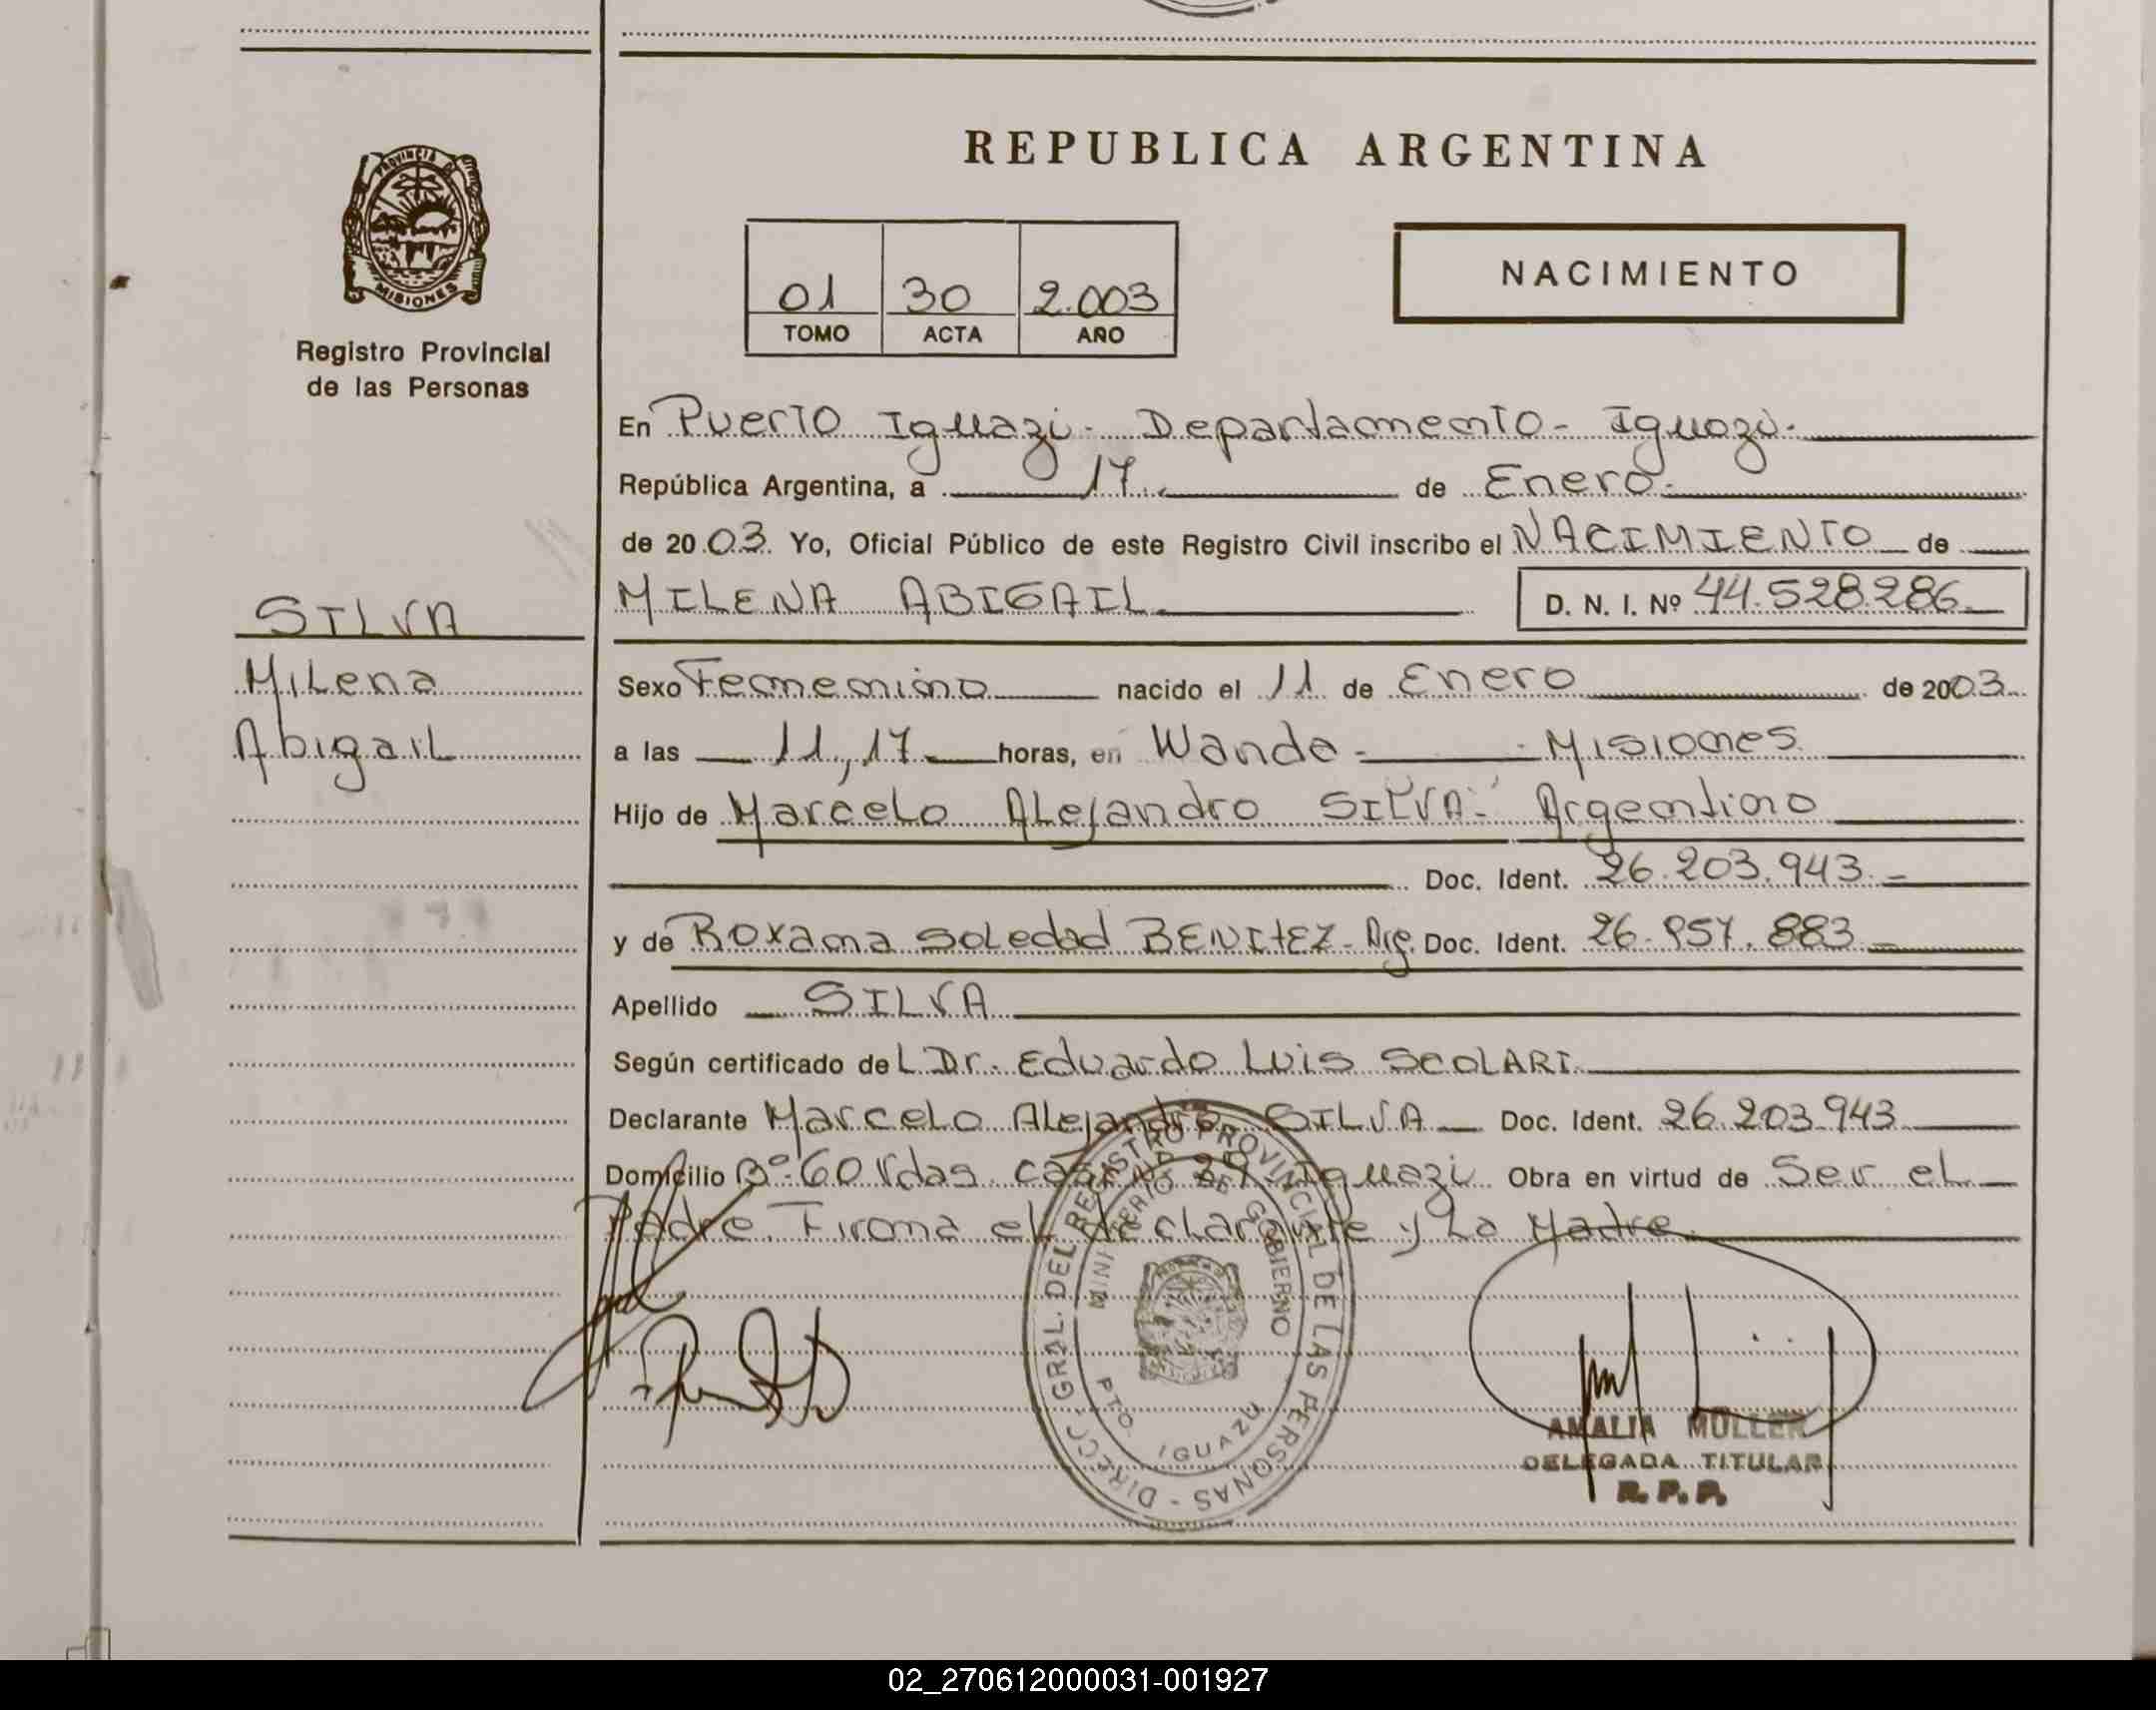 REPUBLICA ARGENTINA
PROVINCIA DE
MISIONES
Registro Provincial
de las Personas
01 30 2.003
TOMO ACTA AÑO
NACIMIENTO
En Puerto Iguazú - Departamento - Iguazú.
República Argentina, a 17 de Enero.
de 2003. Yo, Oficial Público de este Registro Civil inscribo el NACIMIENTO de
SILVA
Milena
Abigail
MILENA ABIGAIL D. N. I. Nº 44.528.286
Sexo Femenino nacido el 11 de Enero de 2003
a las 11,17 horas, en Wanda - Misiones
Hijo de Marcelo Alejandro SILVA - Argentino
Doc. Ident. 26.203.943
y de Roxana Soledad BENITEZ - Arg. Doc. Ident. 26. 883
Apellido SILVA
Según certificado del Dr. Eduardo Luis SCOLARI
Declarante Marcelo Alejandro SILVA Doc. Ident. 26.203.943
Domicilio Bº 60 Vdas. casa Iguazú Obra en virtud de Ser el
Padre. Firma el declarante y La Madre
DIRECC. GRAL. DEL REGISTRO PROVINCIAL DE LAS PERSONAS -
MINISTERIO DE GOBIERNO
PTO. IGUAZU
AMALIA MULLER
DELEGADA TITULAR
R. P. P.
02_270612000031-001927